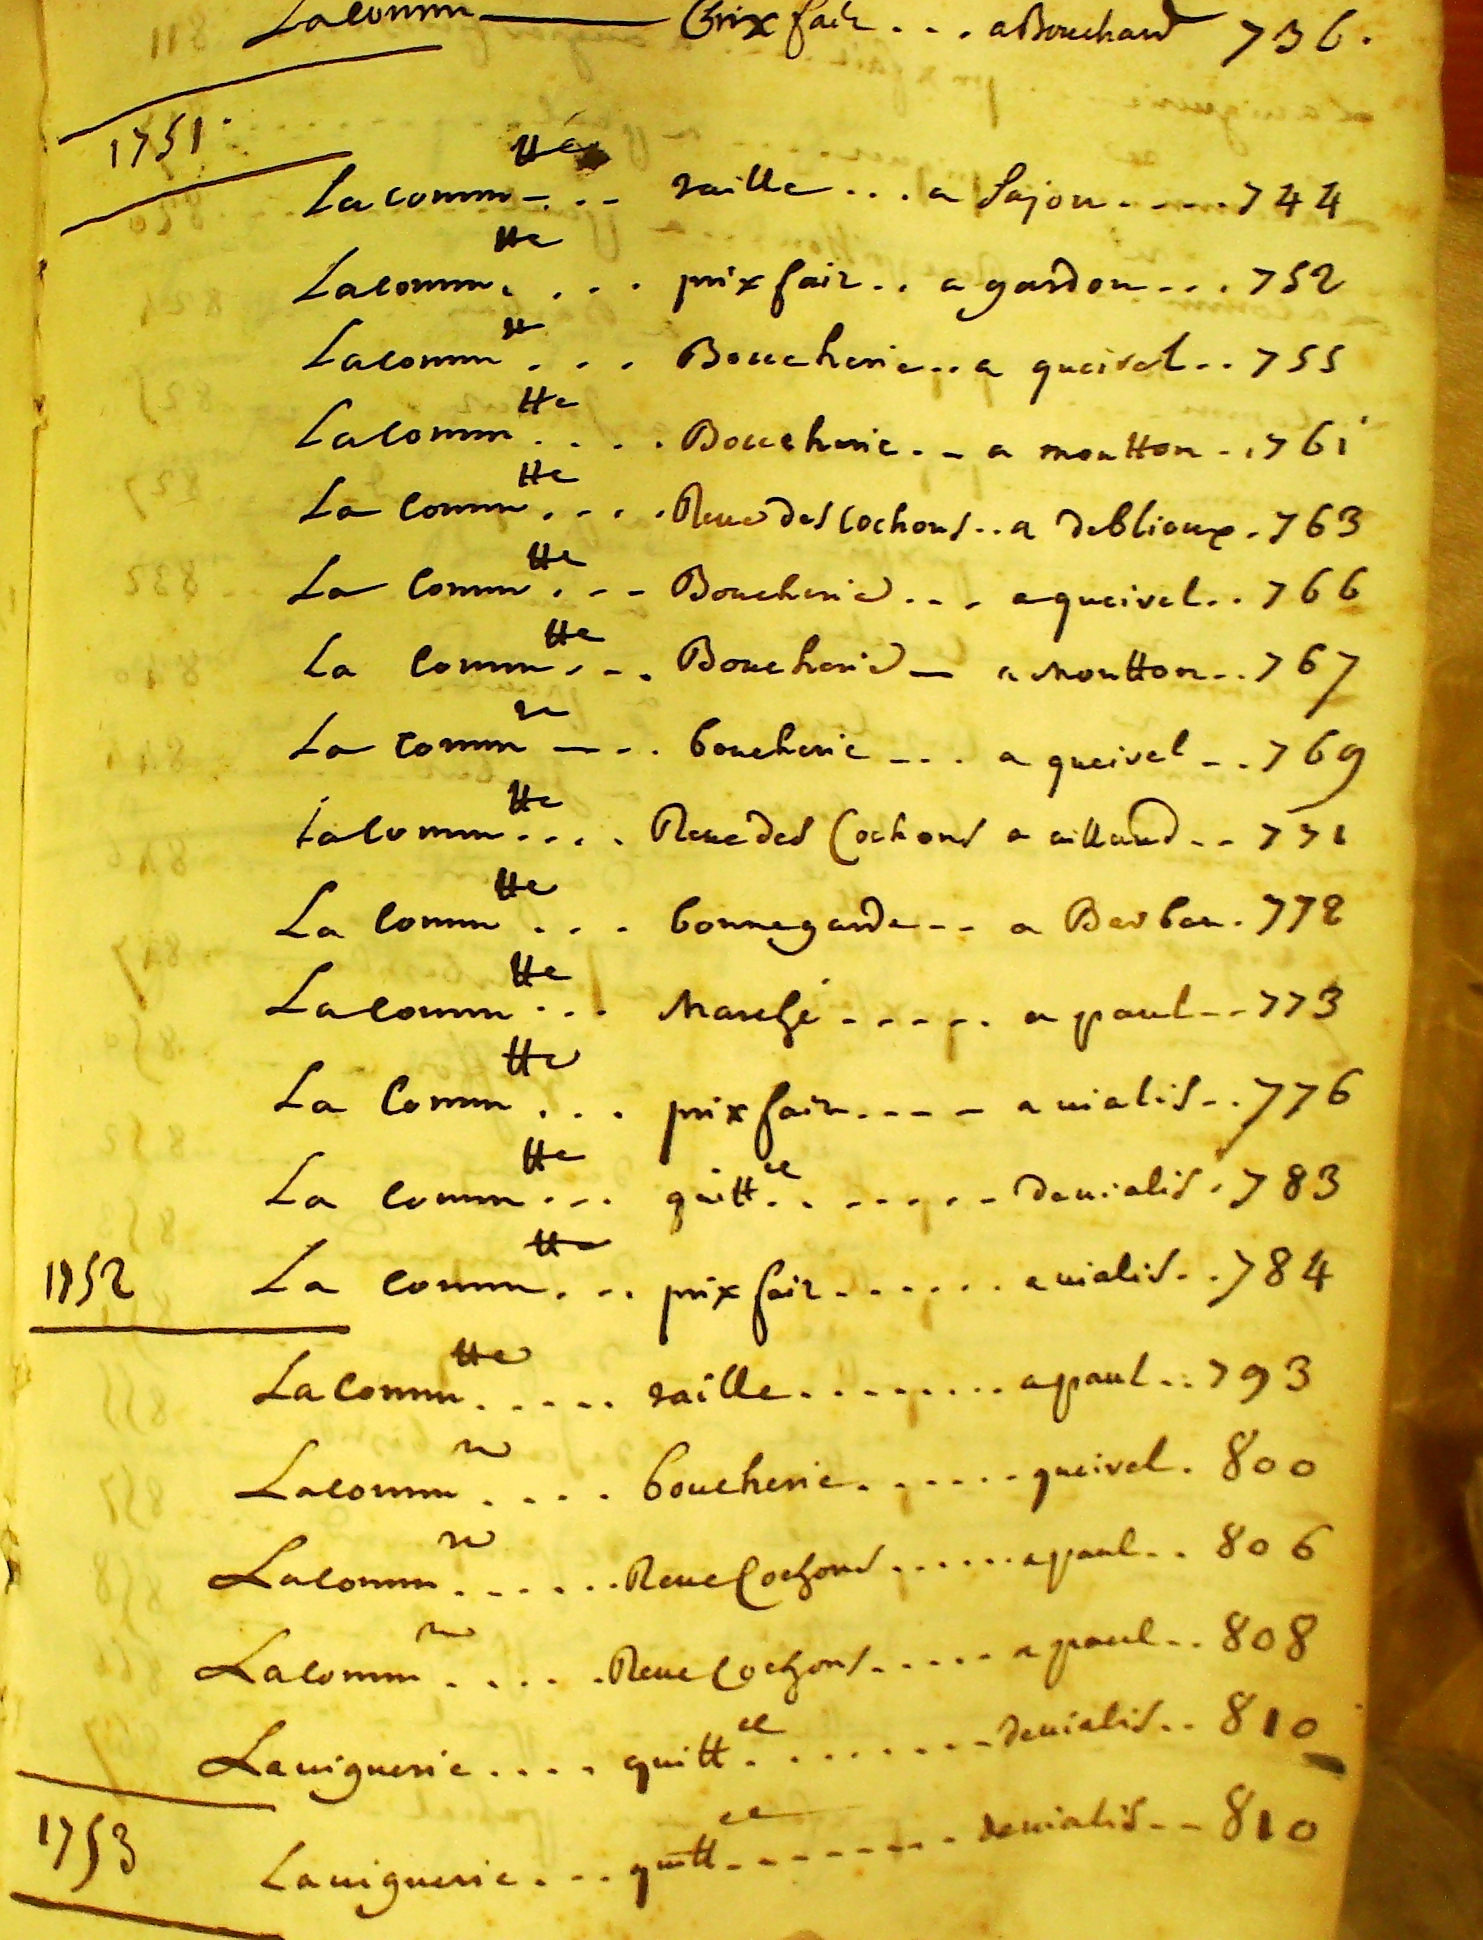 Lacomm prixfait ... a Bouchard 736.
1751.
Lacomm tté ... taille ... a Sajou .... 744
Lacomm tte .... prixfait .. a gardon ... 752
Lacomm te ... Boucherie .. a queirel .. 755
Lacomm tte .... Boucherie .. a moutton .. 761
La comm tte .... Reuedes Cochons .. a deblioux . 763
La comm tte ... Boucherie ... a queirel .. 766
La comm tte ... Boucherie a Moutton .. 767
La comm te ... boucherie ... a queirel .. 769
Lacomm tte .... Reuedes Cochons a aillaud .. 771
La comm tte ... bonnegarde .. a Barban . 772
Lacomm tte ... Marché ..... a paul .. 773
La Comm tte ... prixfait .... a uialis .. 776
La comm tte ... quitt ce ...... deuialis . 783
1752 La comm tte ... prix fait ...... a uialis .. 784
Lacomm tte ..... taille ........ a paul .. 793
Lacomm te .... boucherie ...... queirel . 800
Lacomm te ...... Reue Cochons ...... a paul .. 806
Lacomm te ..... Reue Cochons ..... a paul .. 808
Lauiguerie .... quitt ce ........ deuialis .. 810
1753
Lauiguerie ... quitt ce ........ deuialis .. 810